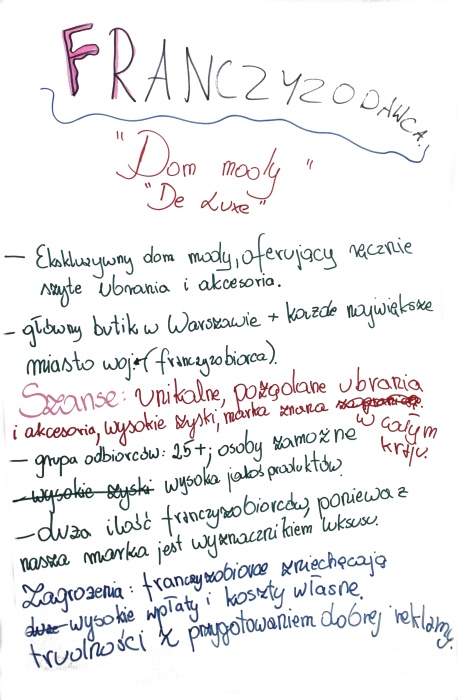 FRANCZYZODAWCA.
"Dom mody"
"De Luxe"
– Ekskluzywny dom mody, oferujący ręcznie
szyte ubrania i akcesoria.
– główny butik w Warszawie + każde największe
miasto woj. (franczyzobiorca).
Szanse: unikalne, pożądane ubrania
i akcesoria, wysokie zyski, marka znana za granicą.
w całym
kraju.
– grupa odbiorców: 25+; osoby zamożne
– wysokie zyski wysoka jakość produktów.
– duża ilość franczyzobiorców, ponieważ
nasza marka jest wyznacznikiem luksusu.
Zagrożenia: franczyzobiorce zniechęcają
duże wysokie wpłaty i koszty własne.
trudności z przygotowaniem dobrej reklamy.